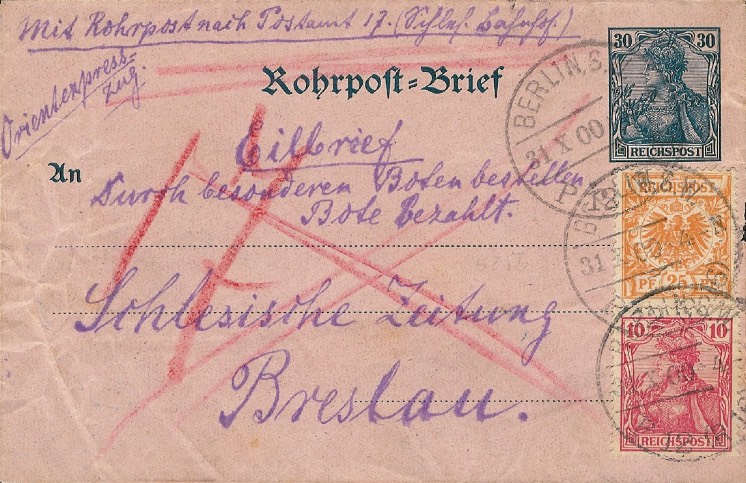 Mit Rohrpost nach Postamt 17. (Schles. Bahnhof.)
Orientexpress-
Zug.
Rohrpoſt=Brief
Eilbrief
An
Durch besonderen Boten bestellen
Bote bezahlt.
Schlesische Zeitung
Breslau.
17
30 30
REICHSPOST
BERLIN, S.
31 X 00
P
REICHSPOST
25 PFENNIG 25
BERLIN
31
10 10
REICHSPOST